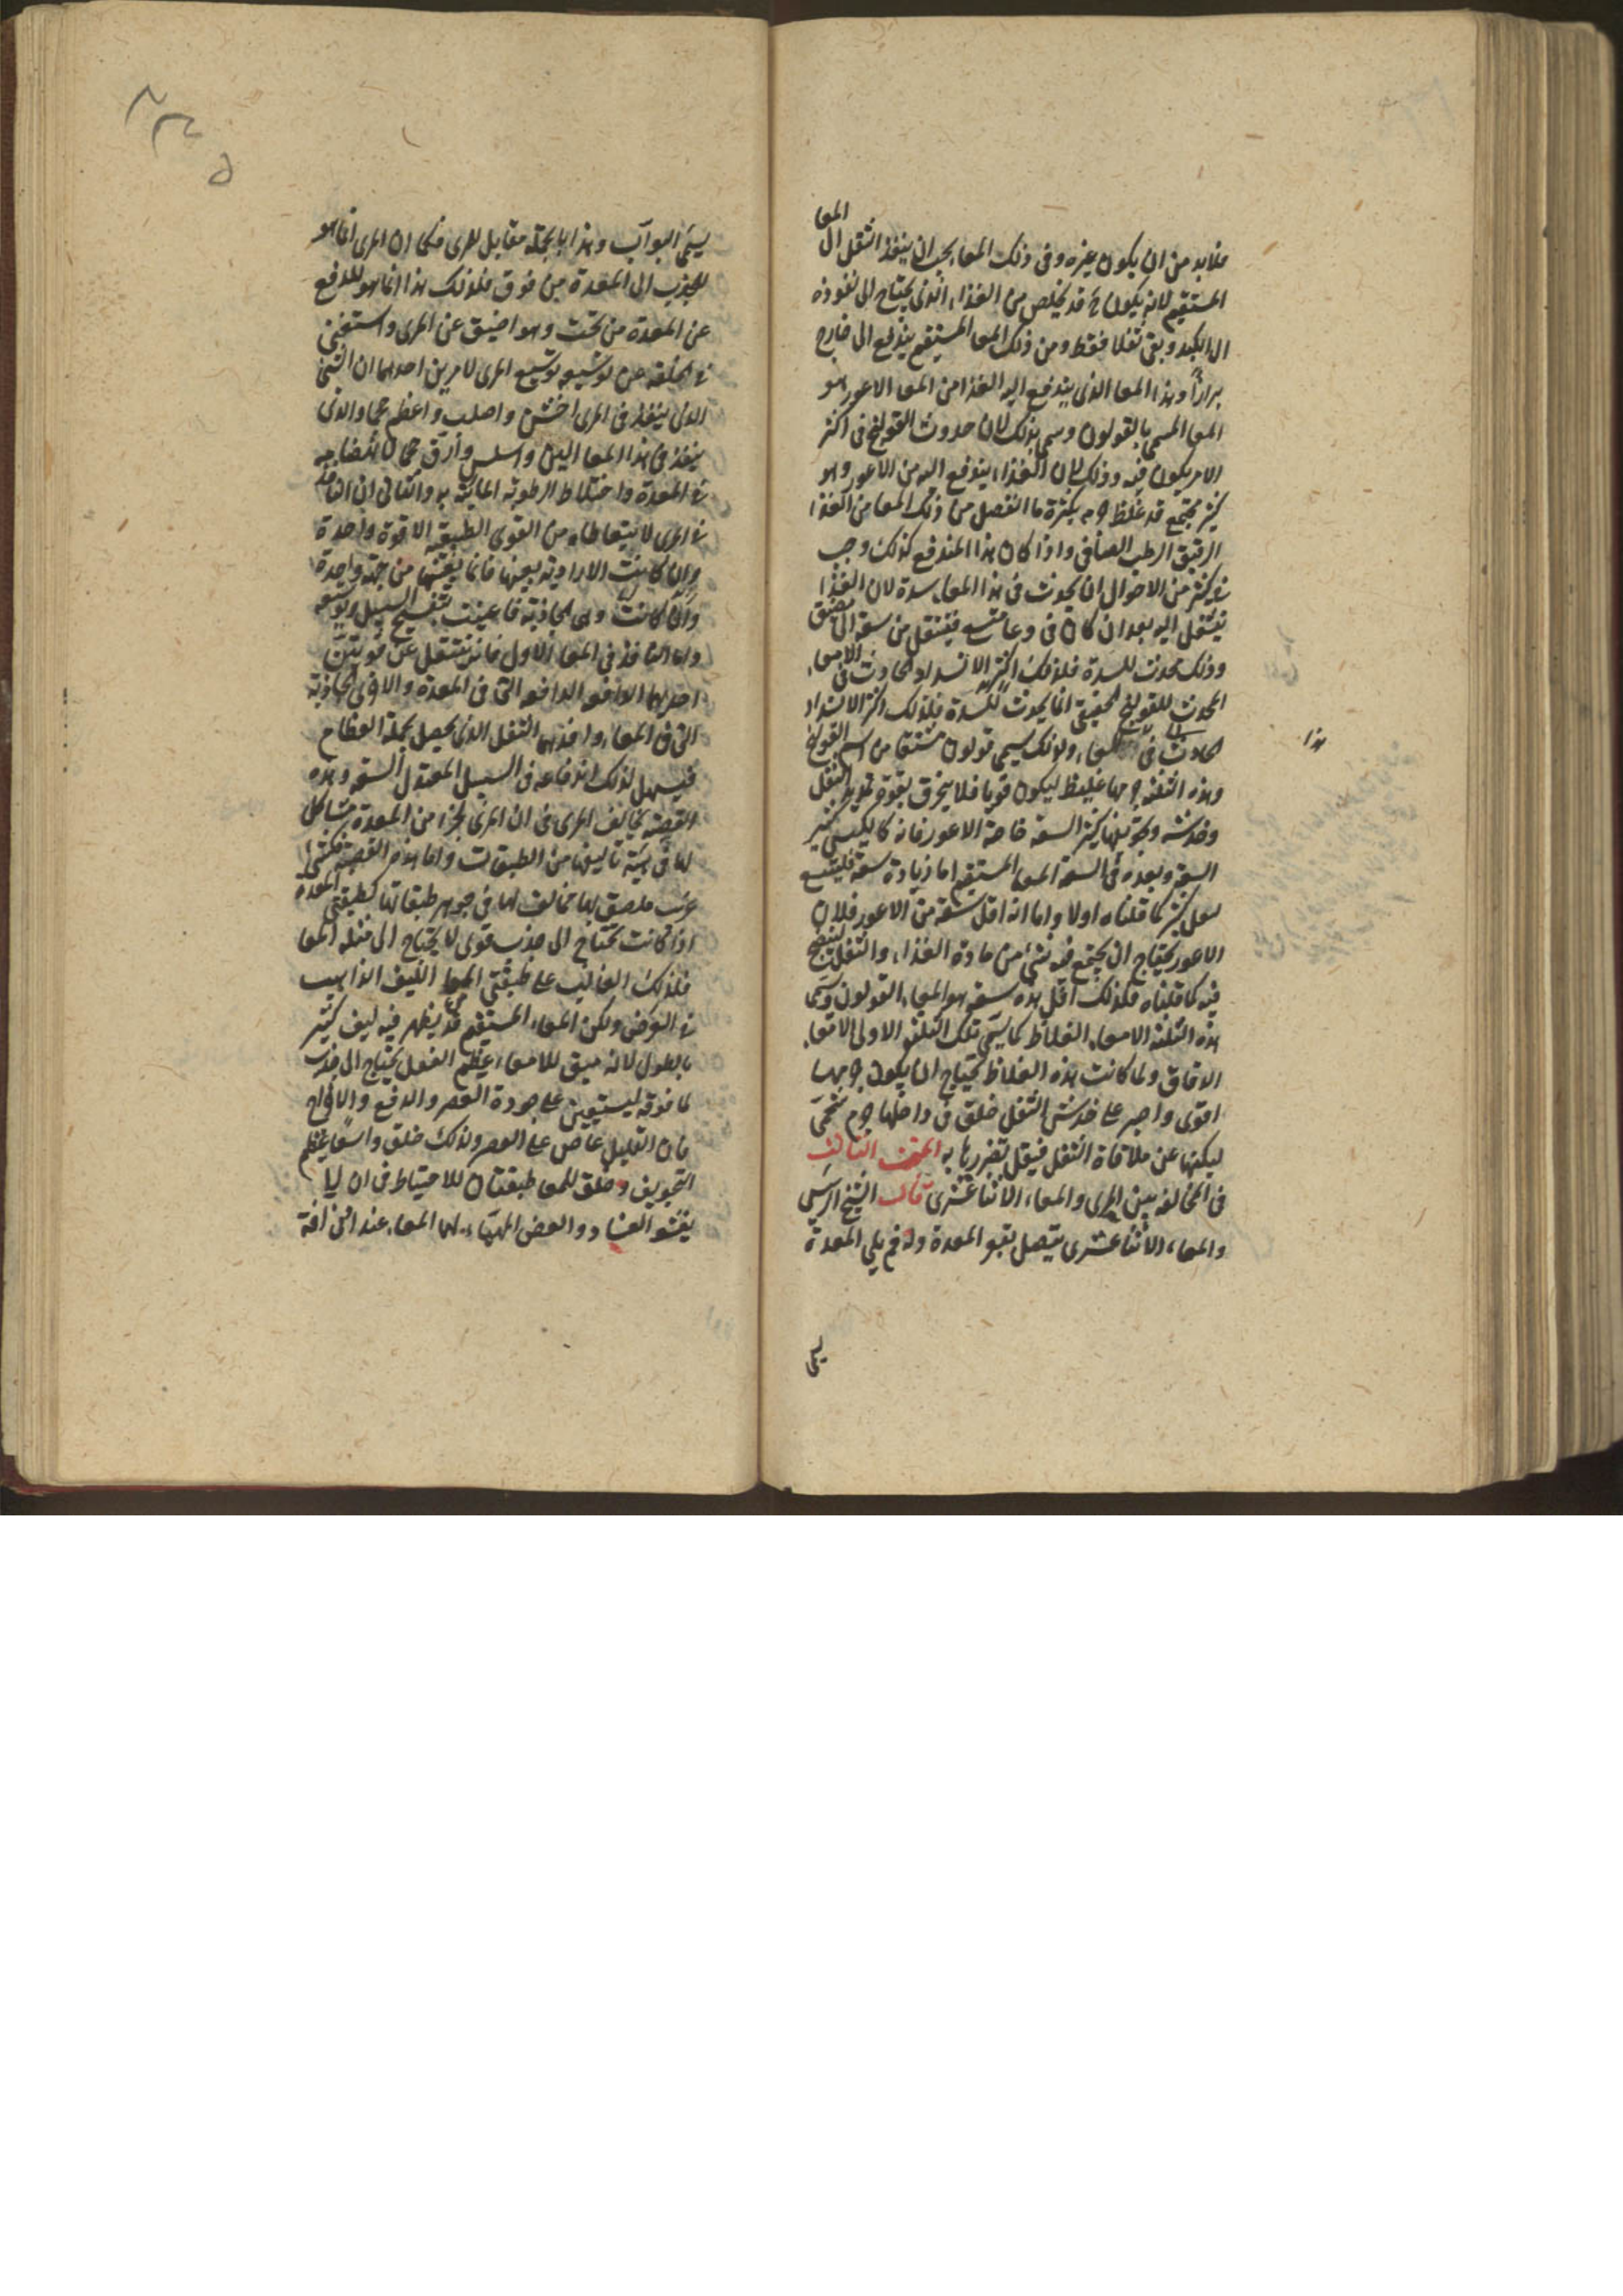 المعا
فلابد من ان يكون غيره وفى ذلك المعا يجب ان ينفذ الثقل الى
المستقيم لانه يكون ح قد يخلص من الغذاء الذى يحتاج الى نفوذه
الى الكبد وبقى ثفلا فقط ومن ذلك المعا المستقيم يندفع الى خارج
برازا وهذا المعا الذى يندفع اليه الغذا من المعا الاعور هو
المعا المسمى بالقولون وسمى بذلك لان حدوث القولنج فى اكثر
الامر يكون فيه وذلك لان الغذاء يندفع اليه من الاعور وهو
كثير مجتمع قد غلظ جرمه بكثرة ما انفصل من ذلك المعا من الغذا
الرقيق الرطب الصافى واذا كان هذا المندفع كذلك وجب
فى كثير من الاحوال ان يحدث فى هذا المعا سدة لان الغذا
ينتقل اليه بعد ان كان فى وعا متسع فينتقل من سعة الى ضيق
وذلك محدث للسدة فلذلك اكثر الانسداد الحادث فى الامعاء
المحدث للقولنج الحقيقى انما يحدث للسدة فلذلك اكثر الانسداد
الحادث فى المعاء ولذلك سمى قولون مشتقا من اسم القولنج
هذا
وهذه الثلثة جرمها غليظ ليكون قويا فلا ينخرق بقوة تمديد الثفل
وخدشه وتجويفها كثير السعة خاصة الاعور فانه كالكيس كثير
السعة وبعده فى السعة المعا المستقيم اما زيادة سعة فليتسع
لثفل كثير كما قلناه اولا واما انه اقل سعة من الاعور فلان
الاعور يحتاج ان يجتمع فيه شئ من مادة الغذاء والثفل لينضج
فيه كما قلناه فلذلك اقل هذه سعة هو المعاء القولون وتسمى
هذه الثلثة الامعاء الغلاظ كما يسمى تلك الثلثة الاولى الامعاء
الدقاق ولما كانت هذه الغلاظ تحتاج ان يكون جرمها
اقوى واصبر على خدش الثفل خلق فى داخلها جرم شحمى
ليكنها عن ملاقاة الثفل فيقل تضررها به المبحث الثالث
فى المخالفة بين المرى والمعاء الاثنا عشرى قال الشيخ الرئيس
والمعاء الاثنا عشرى يتصل بقعر المعدة وله فم يلى المعدة
يسمى
يسمى البواب وهذا بالجملة مقابل للمرى فكما ان المرى انما هو
للجذب الى المعدة من فوق فلذلك هذا انما هو للدفع
عن المعدة من تحت وهو اضيق عن المرى واستغنى
فى الخلقة عن توسيعه توسيع المرى لامرين احدهما ان الشئ
الذى ينفذ فى المرى اخشن واصلب واعظم حجما والذى
ينفذ فى هذا المعا الين واسلس وارق حجما لانهضامه
فى المعدة واختلاط الرطوبة المائية به والثانى ان النافذ
فى المرى لا يتعاطاه من القوى الطبيعية الا قوة واحدة
وان كانت الارادية يعينها فانما يعينها من جهة واحدة
وان كانت وهى الجاذبة فاعينت بتفسيح السبيل وتوسعه
واما النافذ فى المعا الاول فانه ينتقل عن قوتين
احدهما الدافعة التى فى المعدة والاخرى الجاذبة
التى فى المعاء ويرافدهما الثقل الذى يحصل لجملة الطعام
فيسهل لذلك اندفاعه فى السبيل المعتدل السعة وهذه
القطعة تخالف المرى فى ان المرى كجزء من المعدة مشاكل
لها فى هيئة تاليفها من الطبقات واما هذه القطعة فكشئ
غريب ملصق بها مخالف لها فى جوهر طبقاتها لطبقتى المعدة
اذا كانت تحتاج الى جذب قوى لا يحتاج الى مثله المعا
فلذلك الغالب على طبقتى المعا الليف الذاهب
فى العرض ولكن المعاء المستقيم قد يظهر فيه ليف كثير
بالطول لانه منق للامعاء عظيم الفعل يحتاج الى جذب
لما فوقه ليستعين على جودة العصر والدفع والاخراج
فان القليل عاص على العصر ولذلك خلق واسعا عظيم
التجويف وخلق للمعا طبقتان للاحتياط فى ان لا
يفشو الفساد والعفن المهيآن لهما المعاء عند ادنى افة